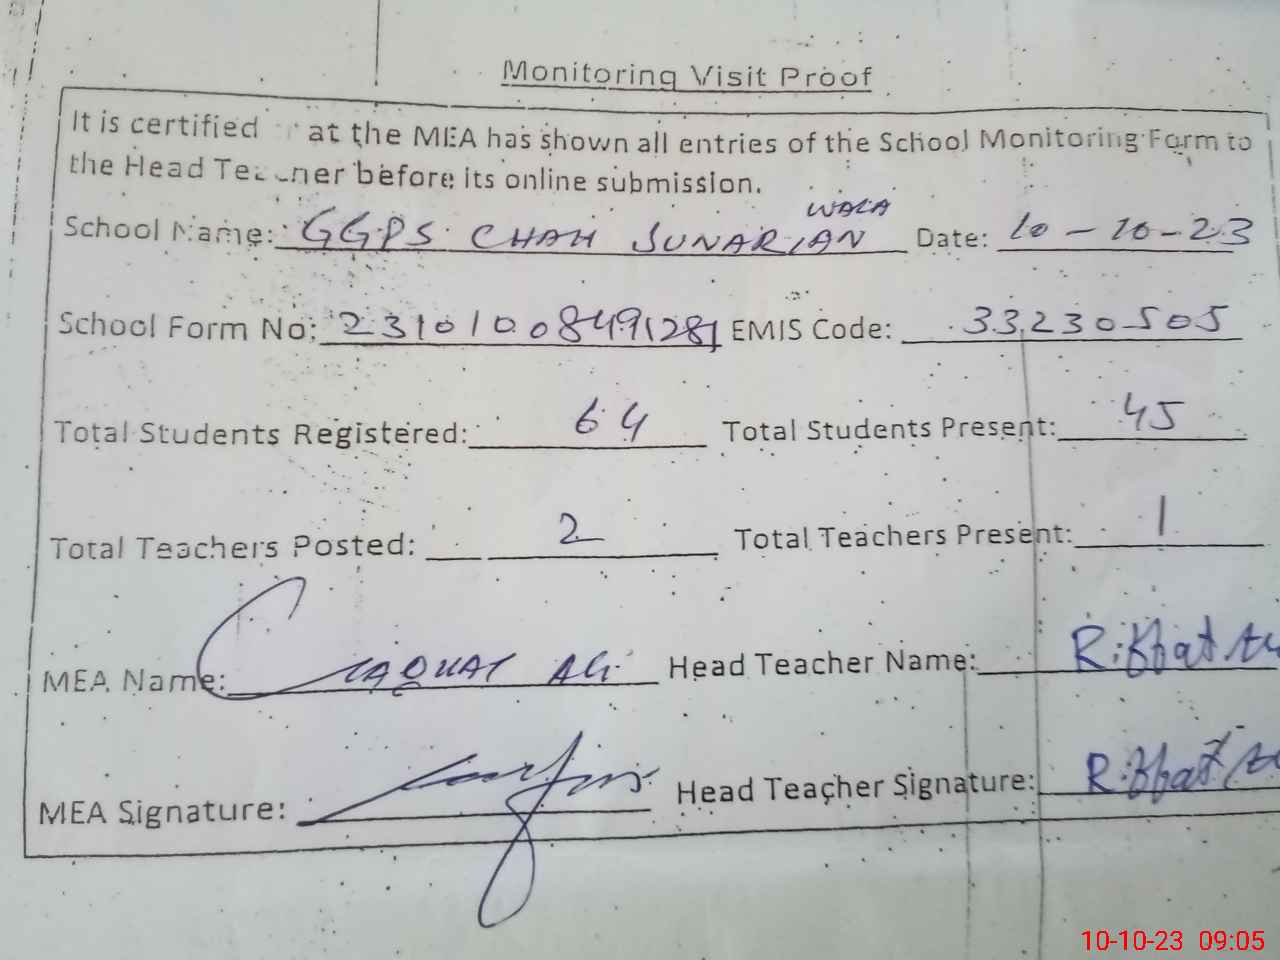 Monitoring Visit Proof
It is certified at the MEA has shown all entries of the School Monitoring Form to
the Head Teacher before its online submission.
School Name: GGPS CHAH SUNARIAN WALA Date: 10-10-23
School Form No: 2310100849128 EMIS Code: 33230505
Total Students Registered: 64 Total Students Present: 45
Total Teachers Posted: 2 Total Teachers Present: 1
MEA Name: LIAQUAT Ali Head Teacher Name: Riffat
MEA Signature: Head Teacher Signature: Riffat
10-10-23 09:05